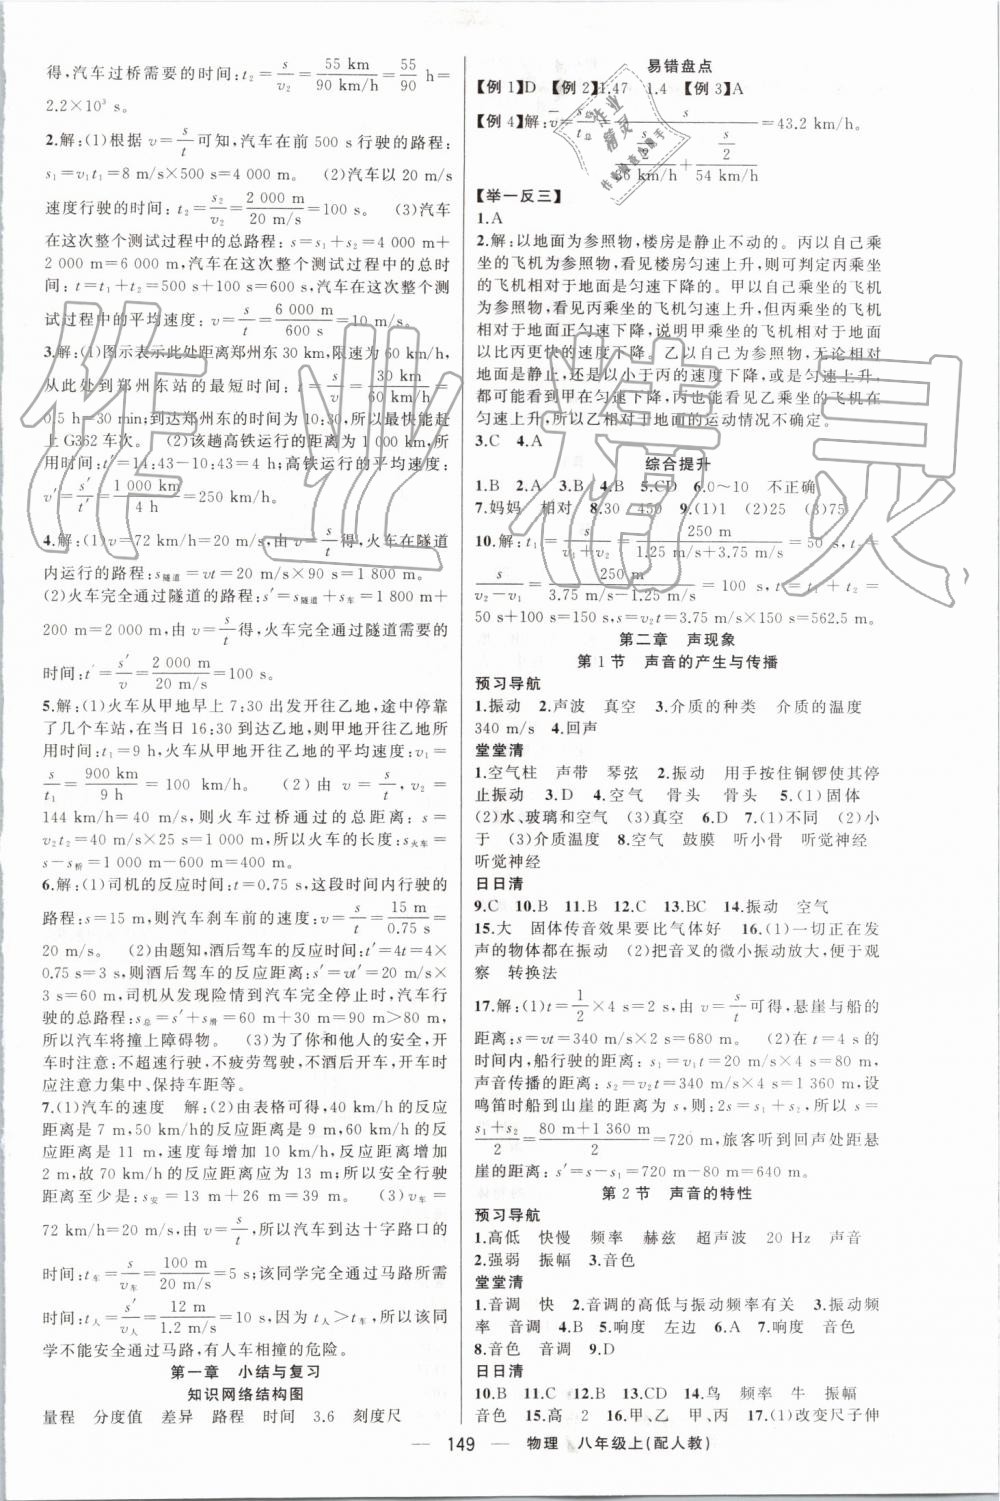 得,汽车过桥需要的时间:t₂=s/v₂=55 km/90 km/h=55/90 h=
2.2×10³ s。
2.解:(1)根据 v=s/t 可知,汽车在前 500 s 行驶的路程:
s₁=v₁t₁=8 m/s×500 s=4 000 m。 (2)汽车以 20 m/s
速度行驶的时间:t₂=s₂/v₂=2 000 m/20 m/s=100 s。 (3)汽车
在这次整个测试过程中的总路程:s=s₁+s₂=4 000 m+
2 000 m=6 000 m,汽车在这次整个测试过程中的总时
间:t=t₁+t₂=500 s+100 s=600 s,汽车在这次整个测
试过程中的平均速度:v=s/t=6 000 m/600 s=10 m/s。
3.解:(1)图示表示此处距离郑州东 30 km,限速为 60 km/h,
从此处到郑州东站的最短时间:t=s/v=30 km/60 km/h=
0.5 h=30 min;到达郑州东的时间为 10:30,所以最快能赶
上 G362 车次。 (2)该趟高铁运行的距离为 1 000 km,所
用时间:t'=14:43-10:43=4 h;高铁运行的平均速度:
v'=s'/t'=1 000 km/4 h=250 km/h。
4.解:(1)v=72 km/h=20 m/s,由 v=s/t 得,火车在隧道
内运行的路程:s隧道=vt=20 m/s×90 s=1 800 m。
(2)火车完全通过隧道的路程:s'=s隧道+s车=1 800 m+
200 m=2 000 m,由 v=s/t 得,火车完全通过隧道需要的
时间:t'=s'/v=2 000 m/20 m/s=100 s。
5.解:(1)火车从甲地早上 7:30 出发开往乙地,途中停靠
了几个车站,在当日 16:30 到达乙地,则甲地开往乙地所
用时间:t₁=9 h,火车从甲地开往乙地的平均速度:v₁=
s/t₁=900 km/9 h=100 km/h。 (2)由 v=s/t 得,v₂=
144 km/h=40 m/s,则火车过桥通过的总路程:s=
v₂t₂=40 m/s×25 s=1 000 m,所以火车的长度:s火车=
s-s桥=1 000 m-600 m=400 m。
6.解:(1)司机的反应时间:t=0.75 s,这段时间内行驶的
路程:s=15 m,则汽车刹车前的速度:v=s/t=15 m/0.75 s=
20 m/s。 (2)由题知,酒后驾车的反应时间:t'=4t=4×
0.75 s=3 s,则酒后驾车的反应距离:s'=vt'=20 m/s×
3 s=60 m,司机从发现险情到汽车完全停止时,汽车行
驶的总路程:s总=s'+s滑=60 m+30 m=90 m>80 m,
所以汽车将撞上障碍物。 (3)为了你和他人的安全,开
车时注意:不超速行驶,不疲劳驾驶,不酒后开车,开车时
应注意力集中、保持车距等。
7.(1)汽车的速度 解:(2)由表格可得,40 km/h 的反应
距离是 7 m,50 km/h的反应距离是 9 m,60 km/h 的反应
距离是 11 m,速度每增加 10 km/h,反应距离增加
2 m,故 70 km/h 的反应距离应为 13 m;所以安全行驶
距离至少是:s安=13 m+26 m=39 m。 (3)v车=
72 km/h=20 m/s,由 v=s/t,所以汽车到达十字路口的
时间:t车=s/v车=100 m/20 m/s=5 s;该同学完全通过马路所需
时间:t人=s'/v人=12 m/1.2 m/s=10 s,因为 t人>t车,所以该同
学不能安全通过马路,有人车相撞的危险。
第一章 小结与复习
知识网络结构图
量程 分度值 差异 路程 时间 3.6 刻度尺
易错盘点
【例 1】D 【例 2】1.47 1.4 【例 3】A
【例 4】解:v=s/t=s/(s/2/36 km/h+s/2/54 km/h)=43.2 km/h。
【举一反三】
1.A
2.解:以地面为参照物,楼房是静止不动的。丙以自己乘
坐的飞机为参照物,看见楼房匀速上升,则可判定丙乘坐
的飞机相对于地面是匀速下降的。甲以自己乘坐的飞机
为参照物,看见丙乘坐的飞机匀速上升,但丙乘坐的飞机
相对于地面正匀速下降,说明甲乘坐的飞机相对于地面
以比丙更快的速度下降。乙以自己为参照物,无论相对
地面是静止,还是以小于丙的速度下降,或是匀速上升,
都可能看到甲在匀速下降,丙也能看见乙乘坐的飞机在
匀速上升,所以乙相对于地面的运动情况不确定。
3.C 4.A
综合提升
1.B 2.A 3.B 4.B 5.CD 6.0～10 不正确
7.妈妈 相对 8.30 450 9.(1)1 (2)25 (3)75
10.解:t₁=s/(v₁+v₂)=250 m/(1.25 m/s+3.75 m/s)=50 s,t₂=
s/(v₂-v₁)=250 m/(3.75 m/s-1.25 m/s)=100 s,t=t₁+t₂=
50 s+100 s=150 s,s=v₂t=3.75 m/s×150 s=562.5 m。
第二章 声现象
第 1 节 声音的产生与传播
预习导航
1.振动 2.声波 真空 3.介质的种类 介质的温度
340 m/s 4.回声
堂堂清
1.空气柱 声带 琴弦 2.振动 用手按住铜锣使其停
止振动 3.D 4.空气 骨头 骨头 5.(1)固体
(2)水、玻璃和空气 (3)真空 6.D 7.(1)不同 (2)小
于 (3)介质温度 8.空气 鼓膜 听小骨 听觉神经
听觉神经
日日清
9.C 10.B 11.B 12.C 13.BC 14.振动 空气
15.大 固体传音效果要比气体好 16.(1)一切正在发
声的物体都在振动 (2)把音叉的微小振动放大,便于观
察 转换法
17.解:(1)t=1/2×4 s=2 s,由 v=s/t 可得,悬崖与船的
距离:s=vt=340 m/s×2 s=680 m。 (2)在 t=4 s 的
时间内,船行驶的距离:s₁=v₁t=20 m/s×4 s=80 m,
声音传播的距离:s₂=v₂t=340 m/s×4 s=1 360 m,设
鸣笛时船到山崖的距离为 s,则:2s=s₁+s₂,所以 s=
(s₁+s₂)/2=(80 m+1 360 m)/2=720 m,旅客听到回声处距悬
崖的距离:s'=s-s₁=720 m-80 m=640 m。
第 2 节 声音的特性
预习导航
1.高低 快慢 频率 赫兹 超声波 20 Hz 声音
2.强弱 振幅 3.音色
堂堂清
1.音调 快 2.音调的高低与振动频率有关 3.振动频
率 音调 4.B 5.响度 左边 6.A 7.响度 音色
8.音色 音调 9.D
日日清
10.B 11.C 12.B 13.C 14.鸟 频率 牛 振幅
音色 15.高 2 16.甲、乙 甲、丙 17.(1)改变尺子伸
— 149 — 物理 八年级上(配人教)
作业精灵